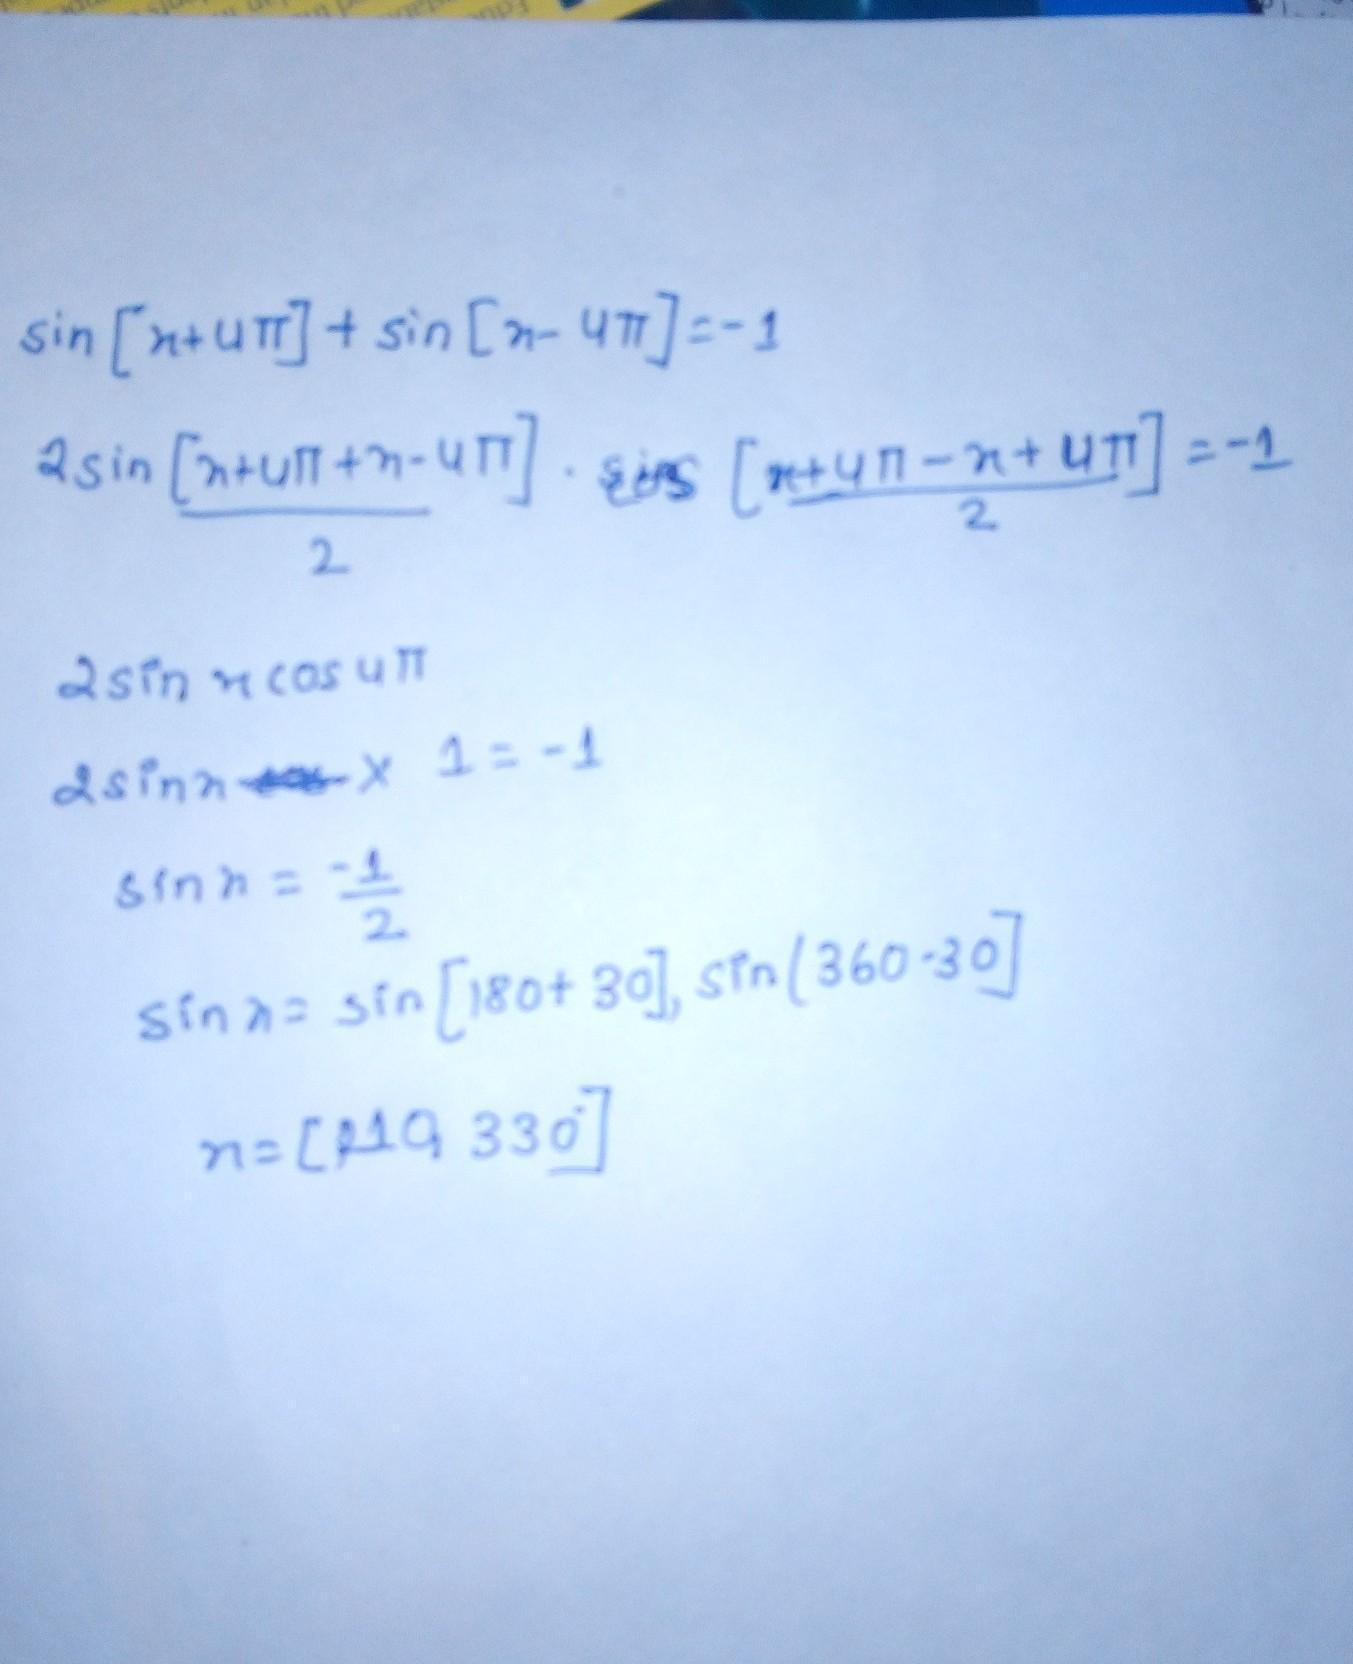 sin [x+4π] + sin [x- 4π] = -1
2sin [x+4π+x-4π]/2 . cos [x+4π-x+4π]/2 = -1
2sin x cos 4π
2sinx × 1 = -1
sin x = -1/2
sin x = sin [180+ 30], sin(360-30]
x = [210, 330]